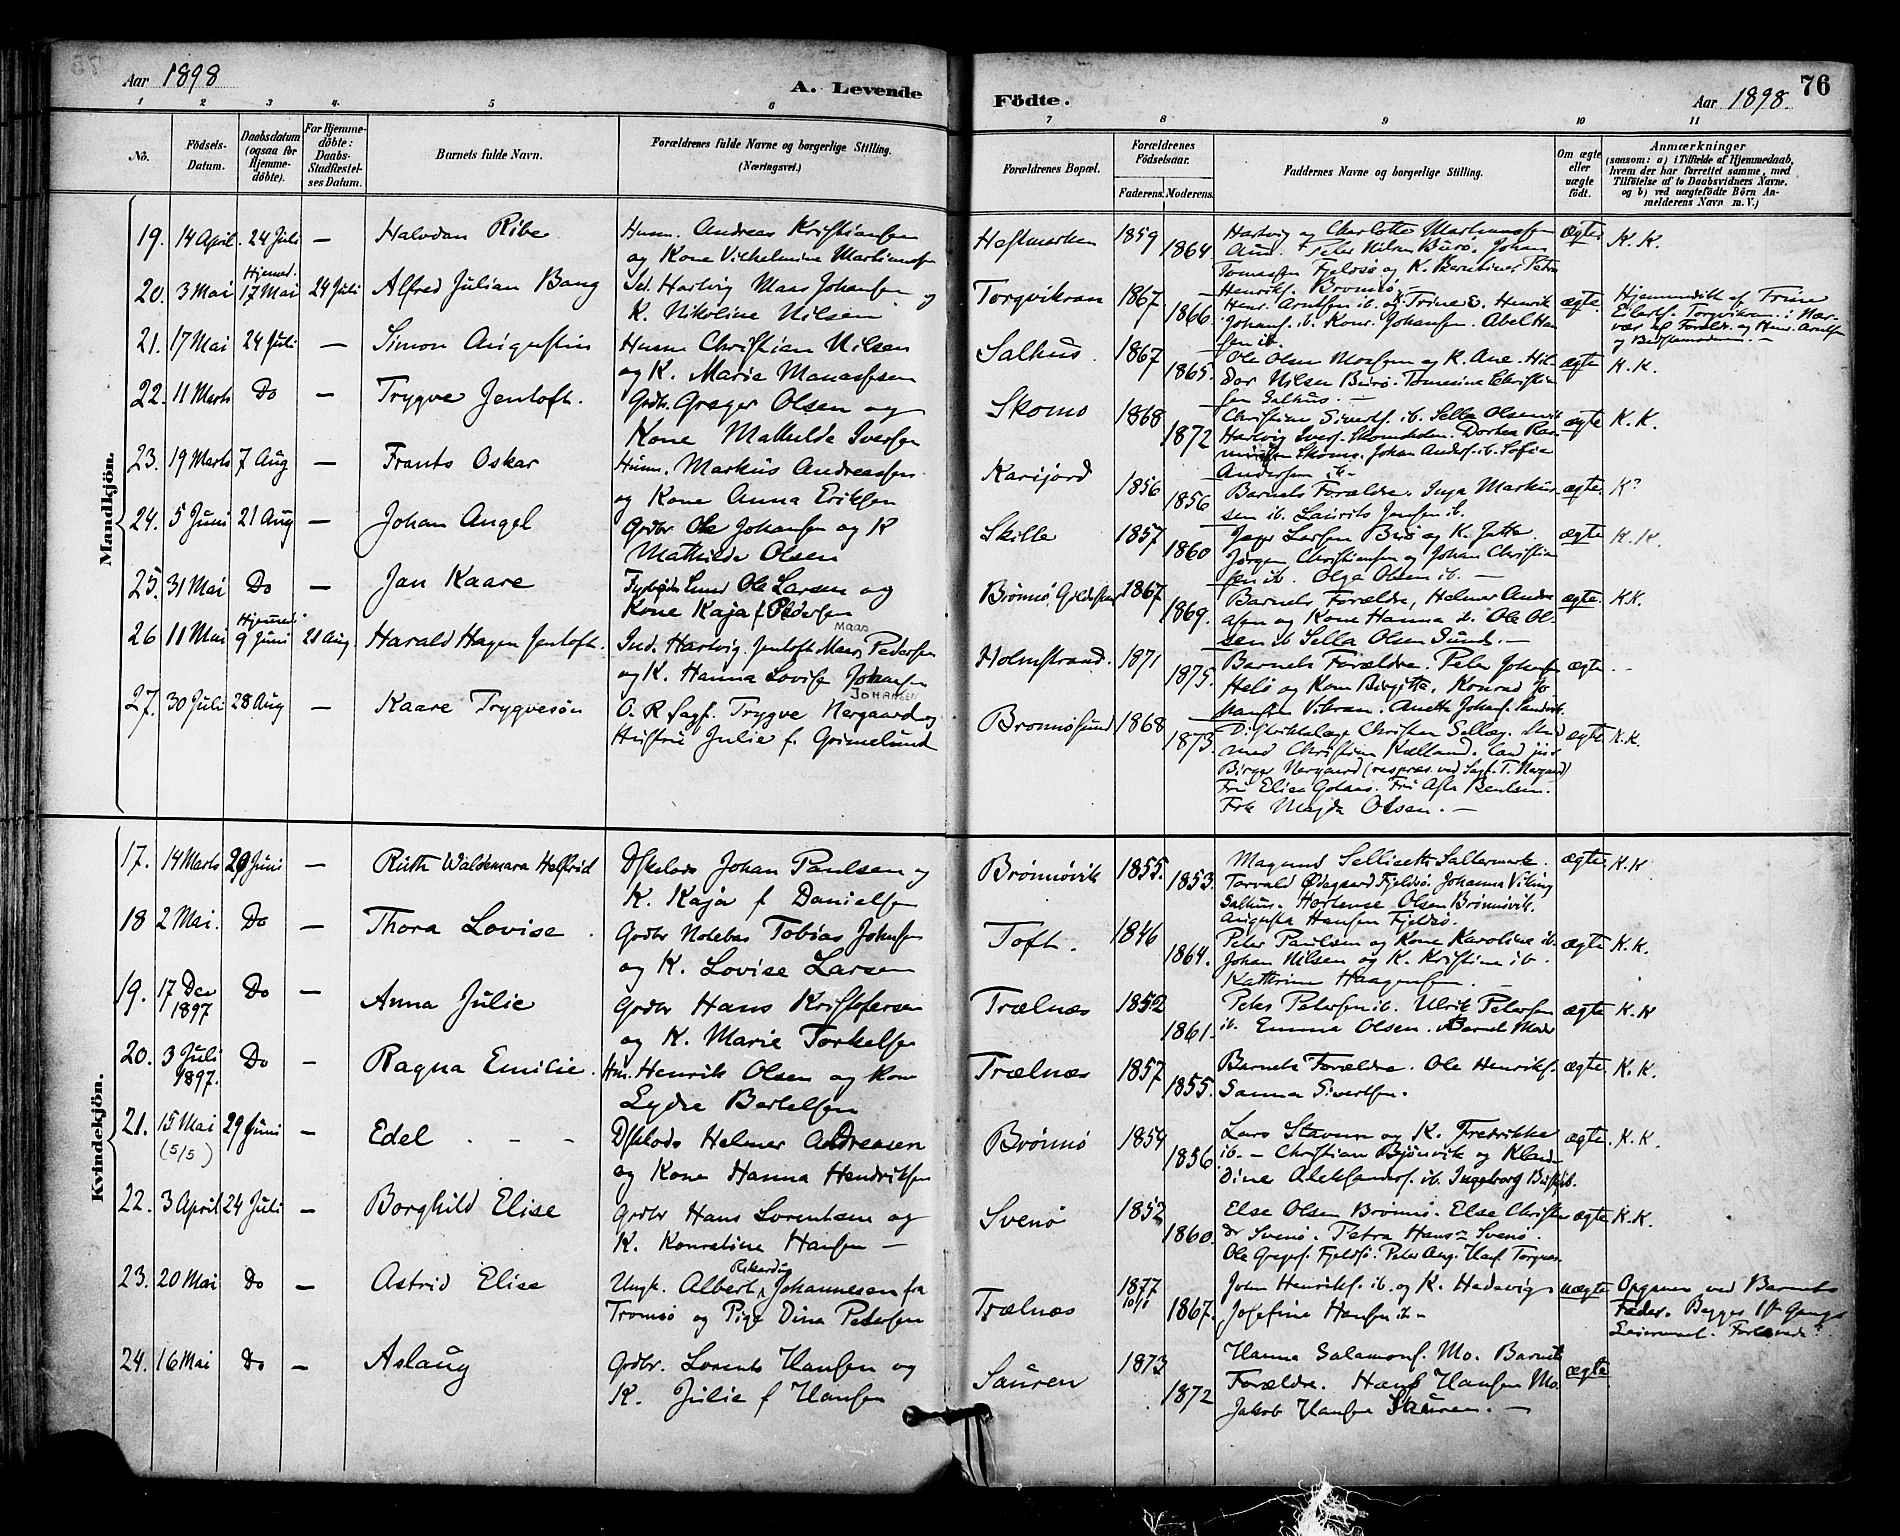 Aar 1898
A. Levende
Födte.
Aar 1898.
76
1 2 3 4. 5 6 7 8 9 10 11
No.
Födsels-Datum.
Daabsdatum (ogsaa for Hjemme-döbte).
For Hjemme-döbte: Daabs-Stadfæstel-ses Datum.
Barnets fulde Navn.
Forældrenes fulde Navne og borgerlige Stilling. (Næringsvei.)
Forældrenes Bopæl.
Forældrenes Födselsaar.
Faderens. Moderens.
Faddernes Navne og borgerlige Stilling.
Om ægte eller uægte födt.
Anmærkninger
(saasom: a) i Tilfælde af Hjemmedaab, hvem der har forrettet samme, med Tilföielse af to Daabsvidners Navne, og b) ved uægtefödte Börn An-melderens Navn m. V.)
Mandkjön.
19. 14 April. 24 Juli — Halvdan Ribe Husm. Andreas Kristiansen
og Kone Vilhelmine Martinussen
Hestmarken 1859 1864 Hartvig og Charlotte Martinussen
Aun. Peter Nilsen Burö. Johan
Tomassen Fjeldsö og K. Berntine. Petra
Henriks. Bromsö
ægte. K. K.
20. 3 Mai Hjemmed. 17 Mai 24 Juli Alfred Julian Bang Ind. Hartvig Maas Johansen og
K. Nikoline Nilsen
Torgvikran 1867 1866. Henr. Arntsen ib. og Trine E. Henrik
Johans. ib. Konr. Johansen. Abel Han
sen ib.
ægte. Hjemmedöbt af Trine
Eilerts. Torgvikran i Nær-
vær af Foreldr. og Henr. Arntsen
og Bedstemoderen. —
21. 17 Mai 24 Juli — Simon Augustin Husm Christian Nilsen
og K. Marie Manassesen
Salhus. 1867 1865. Ole Olsen Moesem og K. Ane. Hal
dor Nilsen Burö. Tomine Christian
sen Salhus. —
ægte K.K.
22. 11 Marts Do — Trygve Jentoft. Grdbr. Greger Olsen og
Kone Mathilde Iversen
Skomo 1868 1872 Christine Siverts. ib. Sella Olsen ib
Hartvig Ivers. Skomsholm. Dortea Ras
mussen Skomo. Johan Anders. ib. Sofie
Andersen ib.
ægte K.K.
23. 19 Marts 7 Aug — Frants Oskar Husm. Markus Andreassen
og Kone Anna Eriksen
Karijord 1856 1856 Barnets Forældre. Inga Markus
sen ib. Laurits Jensen ib.
ægte. K?
24. 5 Juni 21 Aug — Johan Angel Grdbr Ole Johansen og K
Mathilde Olsen
Skille 1857 1860 Jager Larsen Birö og K. Jette.
Jörgen Christiansen og Johan Christian
sen ib. Olga Olsen ib. —
ægte K.K.
25. 31 Mai Do — Jan Kaare Fyrbøder Lund Ole Larsen og
Kone Kaja f Pedersen
Brönnö, Gildestun 1867 1869. Barnets Forældre, Helmer Andre
asen og Kone Hanna ib. Ole Ol-
sen ib Sella Olsen Sund. —
ægte. K.K.
26 11 Mai Hjemmed. 9 Juni 21 Aug. Harald Hagen Jentoft. Ind. Hartvig. Jentoft Maas Pedersen
MAAS
og K. Hanna Lovise Johansen
JOHANSEN
Holmstrand. 1871 1875. Barnets Forældre. Peter Johansen
Helö og Kone Birgitte. Konrad Jo
hansen Vikran. Anette Johans. Sandvik.
ægte —
27. 30 Juli 28 Aug — Kaare Trygvesön O. R. Sagf. Trygve Nergaard og
Hustru Julie f. Grimelund
Brönnösund 1868 1873. Distriktslæge Christen Sellæg. Stud
med Christian Kielland. Cand jur
Birger Nergaard (repræs. ved Sagf. T. Nergaard)
Fru Elise Gotaas. Fru Asta Bentsen.
Frk Magda Olsen. —
ægte K.K.
Kvindekjön.
17. 14 Marts 29 Juni — Ruth Waldemara Helfrid Dskلods Johan Paulsen og
K. Kaja f Danielsen
Brönnövik 1855. 1853. Magnus Sellisett Saltermark.
Torvald Ödegaard Fjeldsö. Johanna Viking
Salhus. Hortense Olsen Brönnövik.
Augusta Hansen Fjeldsö.
ægte. K.K
18 2 Mai. Do — Thora Lovise. Grdbr Notebas Tobias Johnsen
og K. Lovise Larsen
Toft. 1846 1864. Peter Paulsen og Kone Karoline ib.
Johan Nilsen og K. Kristine ib.
Kathrine Haagensen. —
ægte K.K.
19. 17 Dec 1897 Do — Anna Julie Grdbr Hans Kristofersen
og K. Marie Torkelsen
Trælnes 1852 1861. Peter Petersen ib. Ulrik Petersen
ib. Emma Olsen. Barnets Moder
ægte K.K
20. 3 Juli 1897. Do — Ragna Emilie. Hm. Henrik Olsen og Kone
Lydia Bertelsen
Trælnes 1857 1855. Barnets Forældre. Ole Henriks.
Sanna Sivertsen.
ægte. K.K.
21. 15 Mai (5/5) 29 Juni — Edel - - - Dskلods Helmer Andreasen
og Kone Hanna Hendriksen
Brönnö 1859 1856. Lars Stavrum og K. Fredrikke
ib. — Christian Björnvik og Klau-
dine Aleksanders. ib. Ingeborg ib.
ægte. K.K.
22. 3 April 24 Juli — Borghild Elise Grdbr Hans Lorentsen og
K. Konradine Hansen —
Svenö 1852 1860. Else Olsen Brönnö. Else Christen
dr Svenö. Petra Hans= Svenö.
Ole Gregs. Fjeldsö. Peter Aug. Hans. Torgnes
ægte K.K.
23. 20 Mai Do — Astrid Elise Ungk. Albert Rikardus Johannesen fra
Tromsö og Pige Dina Petersen
Trælnes 1877 10/1 1867. John Henriks. ib. og K. Hedevig
Josefine Hansen ib. —
uægte Opgiven ved Barnets
Fader. Begges 1ste Gangs
Leiermaal. Forlovede?
24. 16 Mai Do — Aslaug Grdbr. Lorents Hansen og
K. Julie f Hansen
Sauren 1873 1872 Hanna Salamons. Mo. Barnets
Forældre. Hans Hansen Mo.
Jakob Hansen Sauren. —
ægte